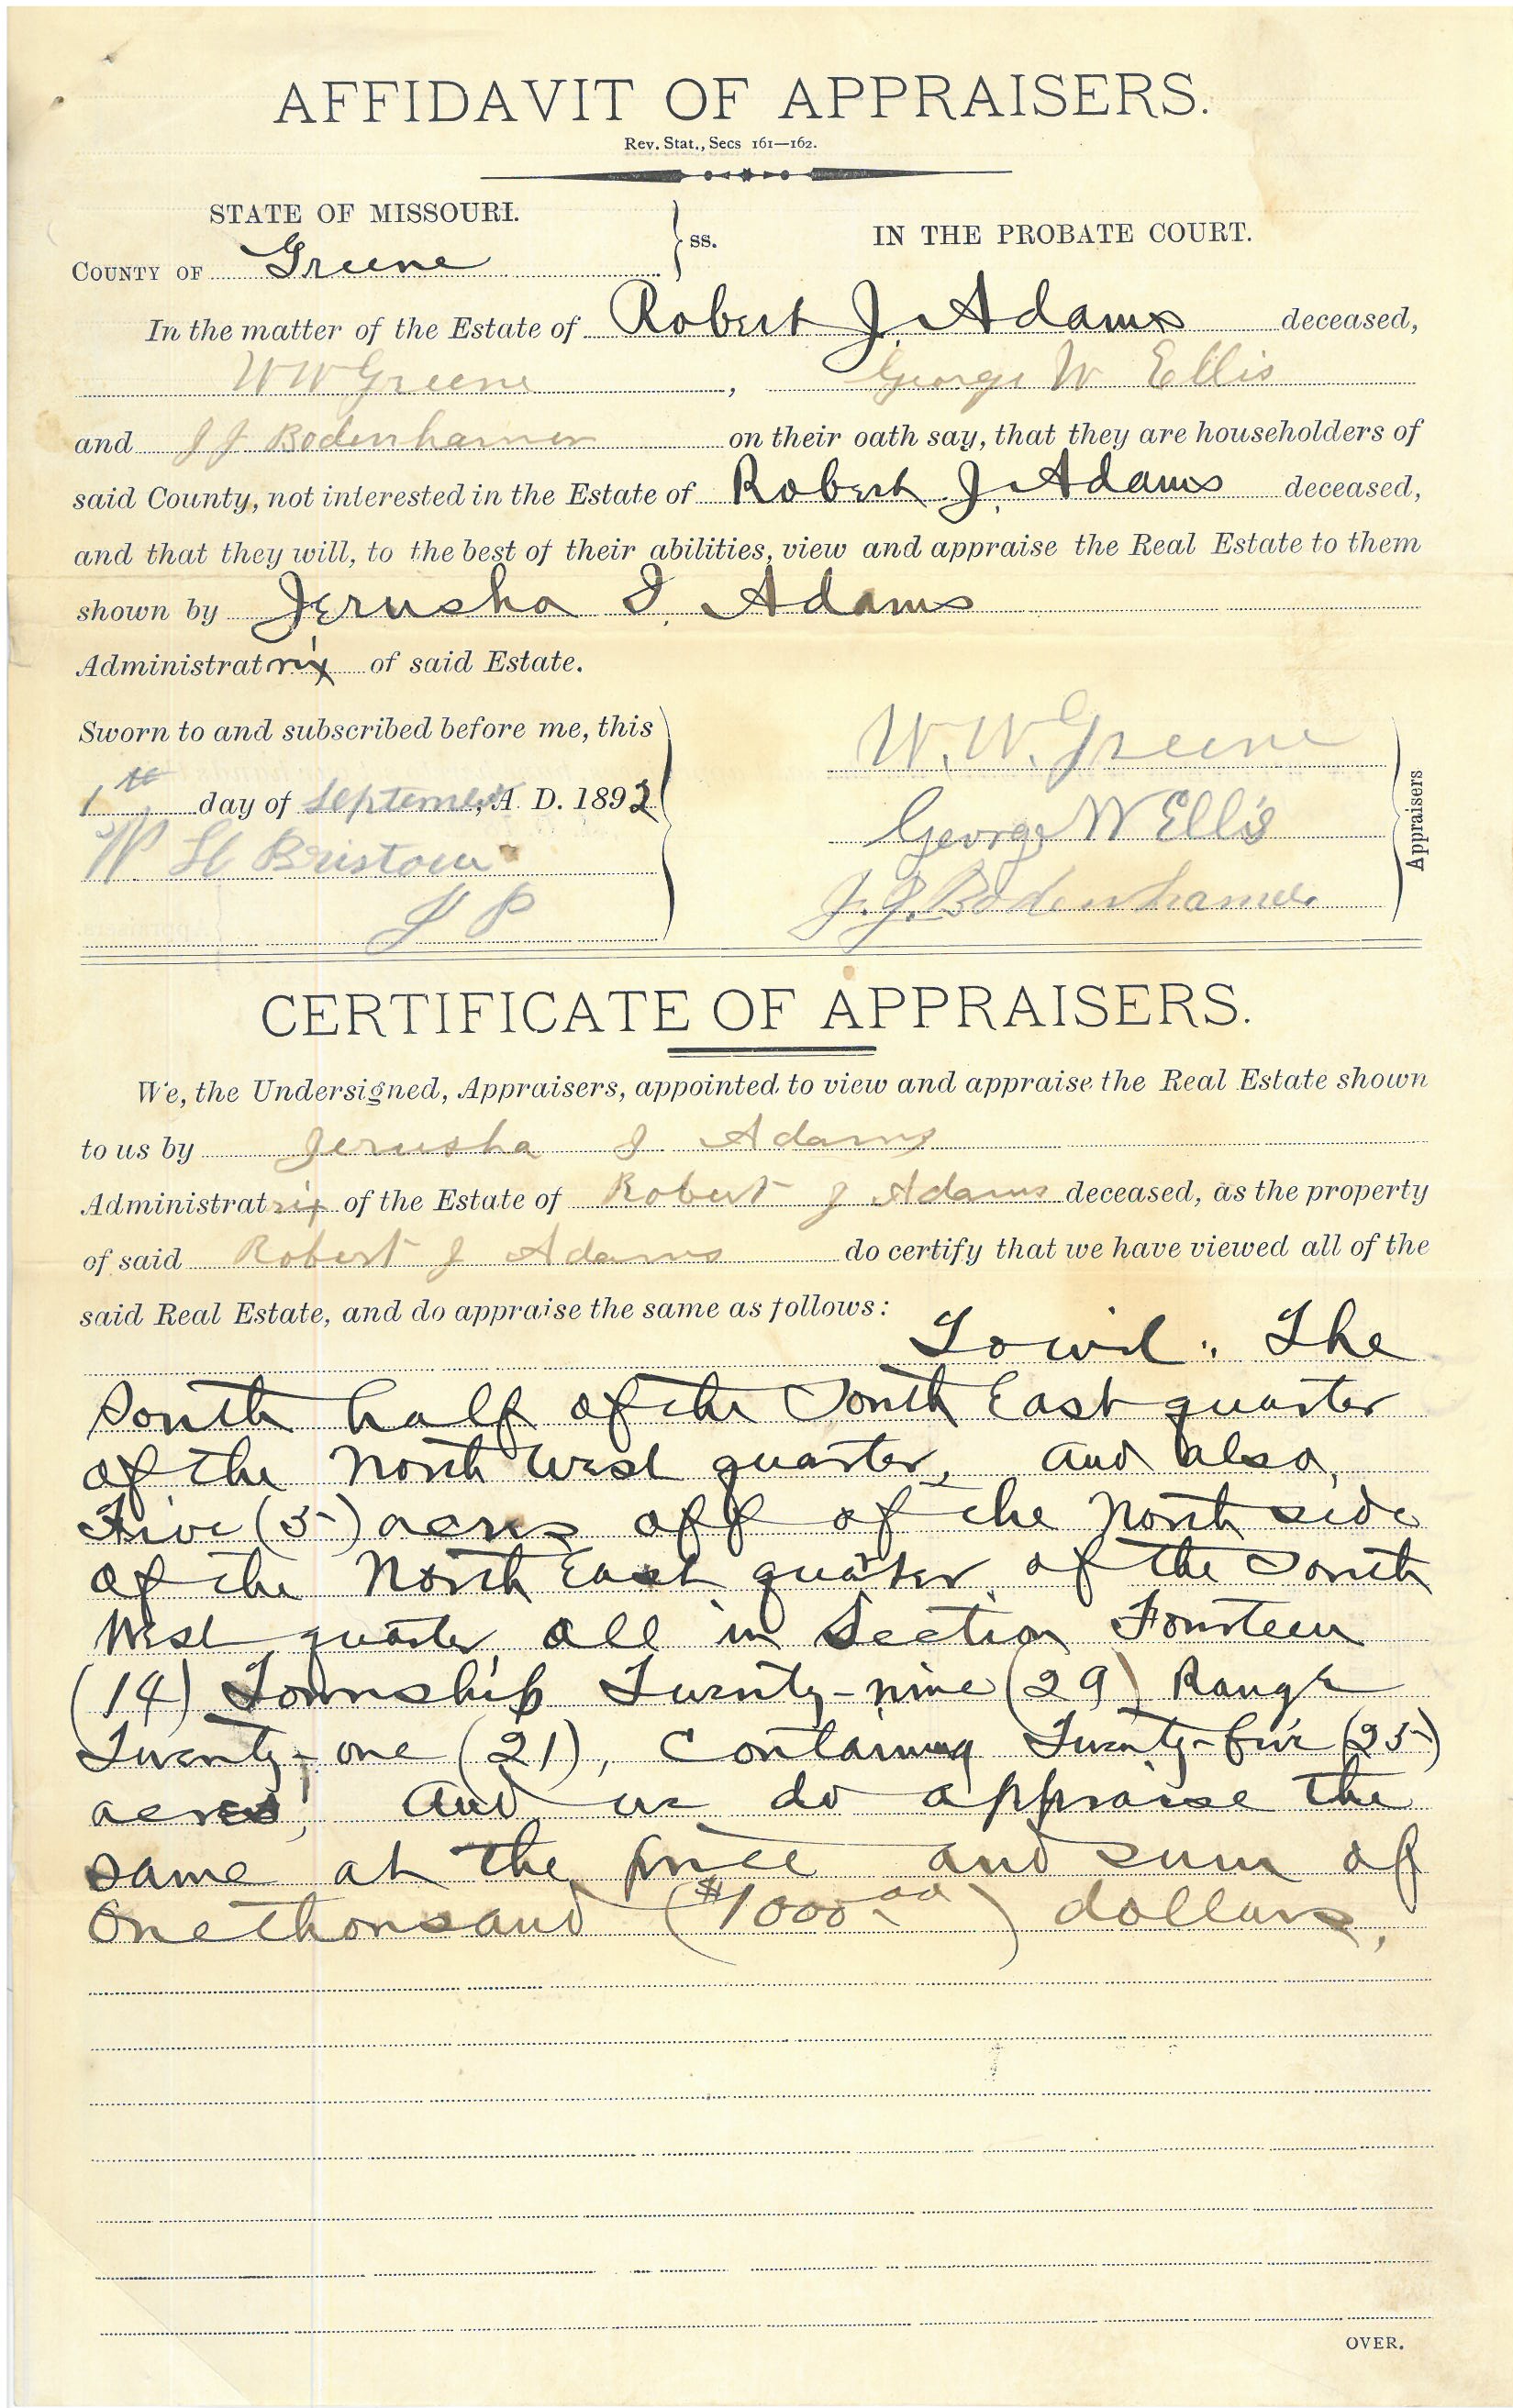 AFFIDAVIT OF APPRAISERS.
Rev. Stat., Secs 161—162.
STATE OF MISSOURI.
COUNTY OF Greene
ss.
IN THE PROBATE COURT.
In the matter of the Estate of Robert J. Adams deceased,
W W Greene, George W Ellis
and J J Bodenhamer on their oath say, that they are householders of
said County, not interested in the Estate of Robert J. Adams deceased,
and that they will, to the best of their abilities, view and appraise the Real Estate to them
shown by Jerusha I. Adams
Administratrix of said Estate.
Sworn to and subscribed before me, this
1th day of Septemer, A. D. 1892
W H Bristow
J P
W. W. Greene
George W Ellis
J. J. Bodenhamer
Appraisers
CERTIFICATE OF APPRAISERS.
We, the Undersigned, Appraisers, appointed to view and appraise the Real Estate shown
to us by Jerusha I Adams
Administratrix of the Estate of Robert J Adams deceased, as the property
of said Robert J Adams do certify that we have viewed all of the
said Real Estate, and do appraise the same as follows:
Towit: The
South half of the South East quarter
of the North West quarter, and also,
Five (5) acres off of the North side
of the North East quarter of the South
West quarter, all in Section Fourteen
(14) Township Twenty-nine (29) Range
Twenty-one (21), Containing Twenty-five (25)
acres, and we do appraise the
same at the price and sum of
One thousand ($1000.00) dollars,
OVER.